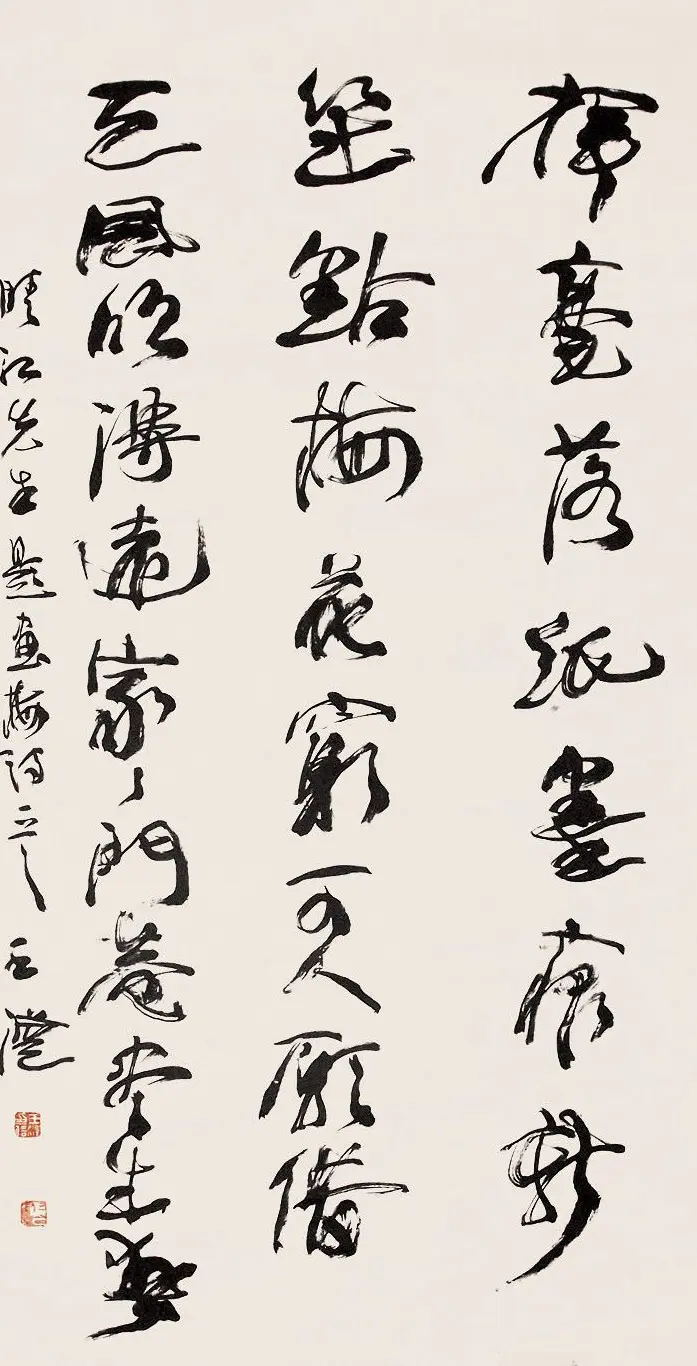 揮毫落紙墨痕新
幾點梅花最可人願借
天風吹得遠家々門巷盡成春
晴江先生題畫梅詩 王澄